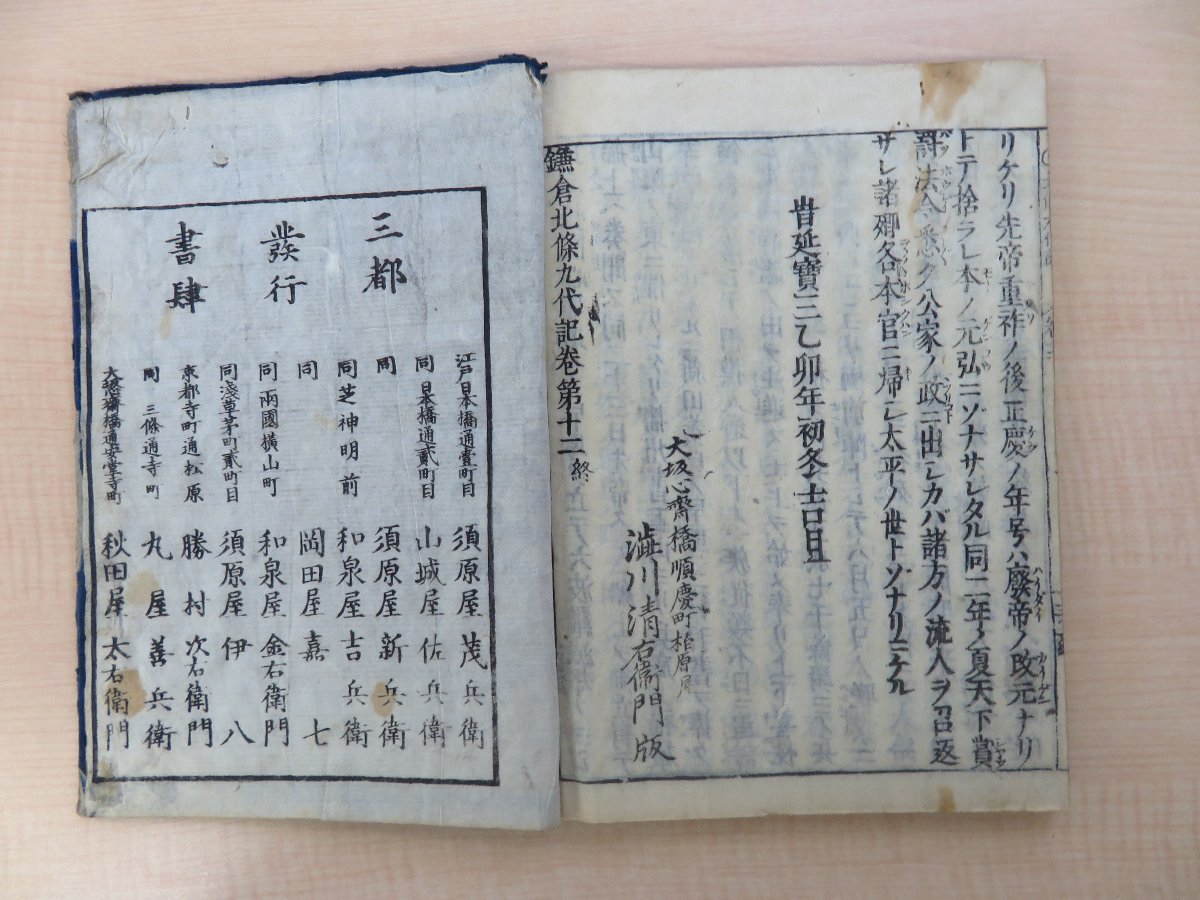 リケリ先帝重祚ノ後正慶ノ年号ハ廢帝ノ改元ナリ
トテ捨ラレ本ノ元弘ニゾナサレタル同二年ノ夏天下賞
罸法令悉ク公家ノ政ニ出シカバ諸方ノ流人ヲ召返
サレ諸卿各本官ニ帰シ太平ノ世トゾナリニケル
旹延寶三乙卯年初冬十一日
大坂心齋橋順慶町柏原屋
澁川清右衛門版
鎌倉北條九代記卷第十二終
三都
發行
書肆
江戸日本橋通壹町目 須原屋茂兵衛
同日本橋通貳町目 山城屋佐兵衛
同 須原屋新兵衛
同芝神明前 和泉屋吉兵衛
同 岡田屋嘉七
同兩國横山町 和泉屋金右衛門
同淺草茅町貳町目 須原屋伊八
京都寺町通松原 勝村次右衛門
同三條通寺町 丸屋善兵衛
大坂心齋橋通安堂寺町 秋田屋太右衛門